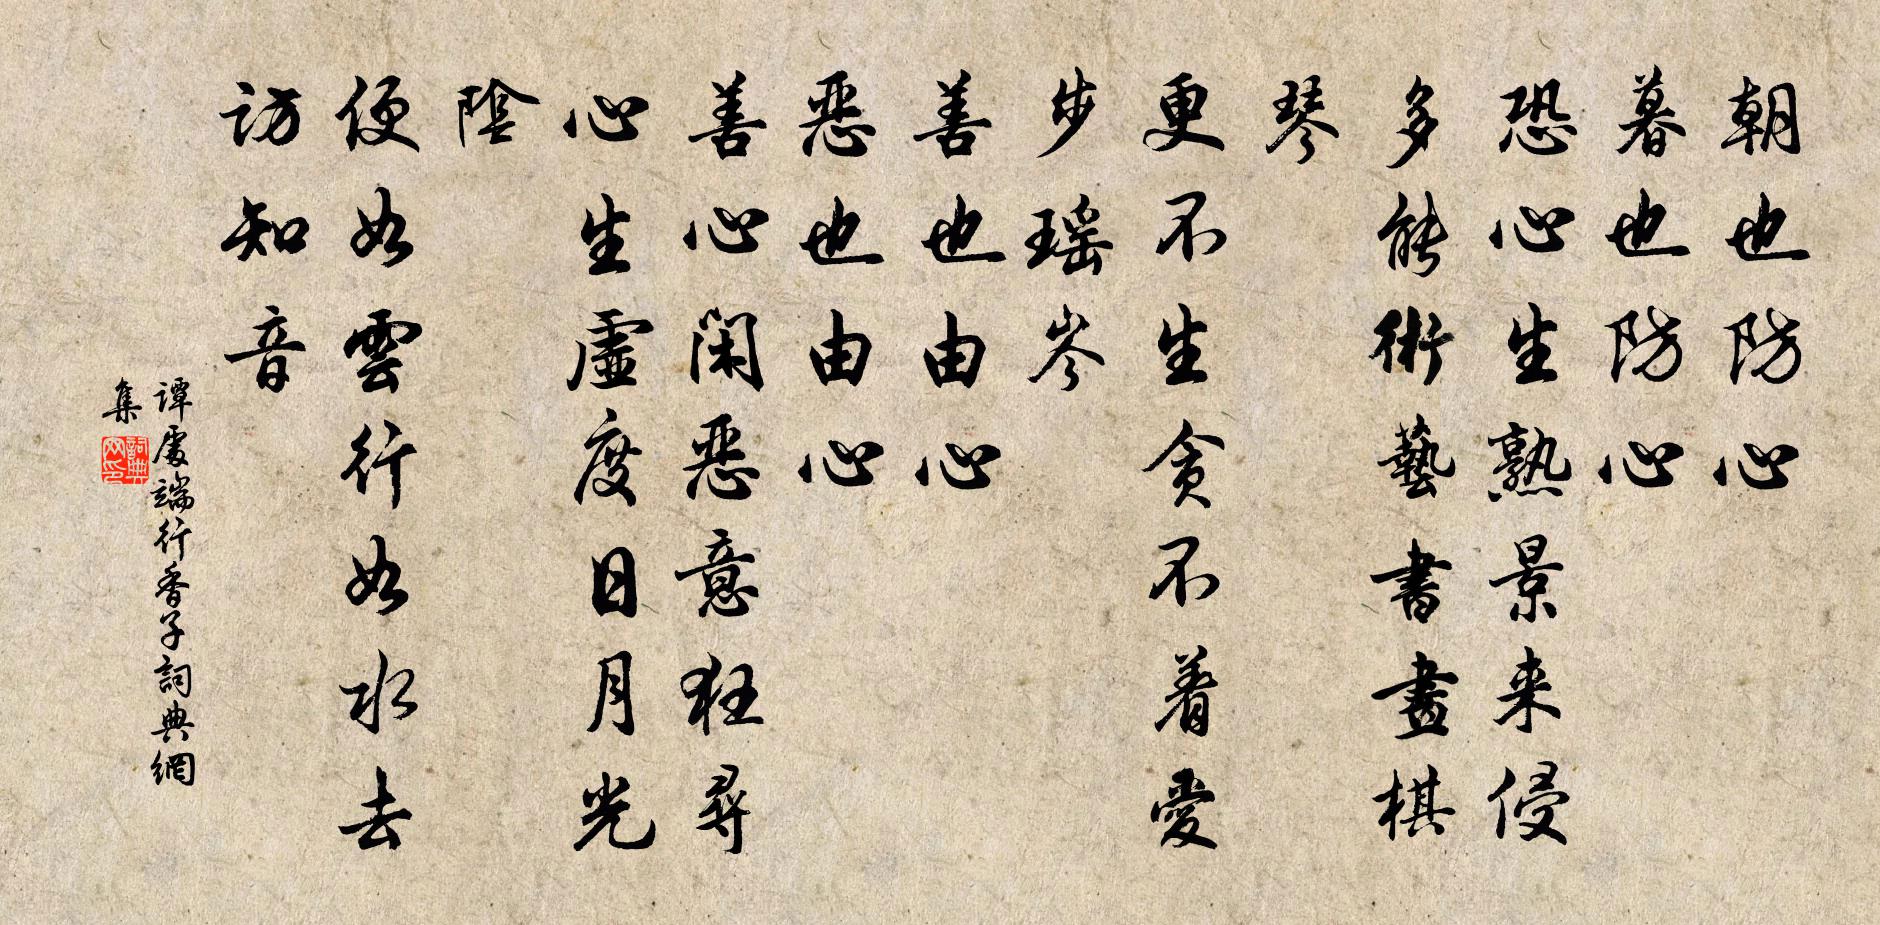 朝也防心
暮也防心
恐心生熟景来侵
多能術藝書畫棋
琴
更不生貪不着愛
步瑶岑
善也由心
惡也由心
善心閑惡意狂尋
心生虛度日月光
陰
便如雲行如水去
訪知音
譚處端行香子詞典網
集